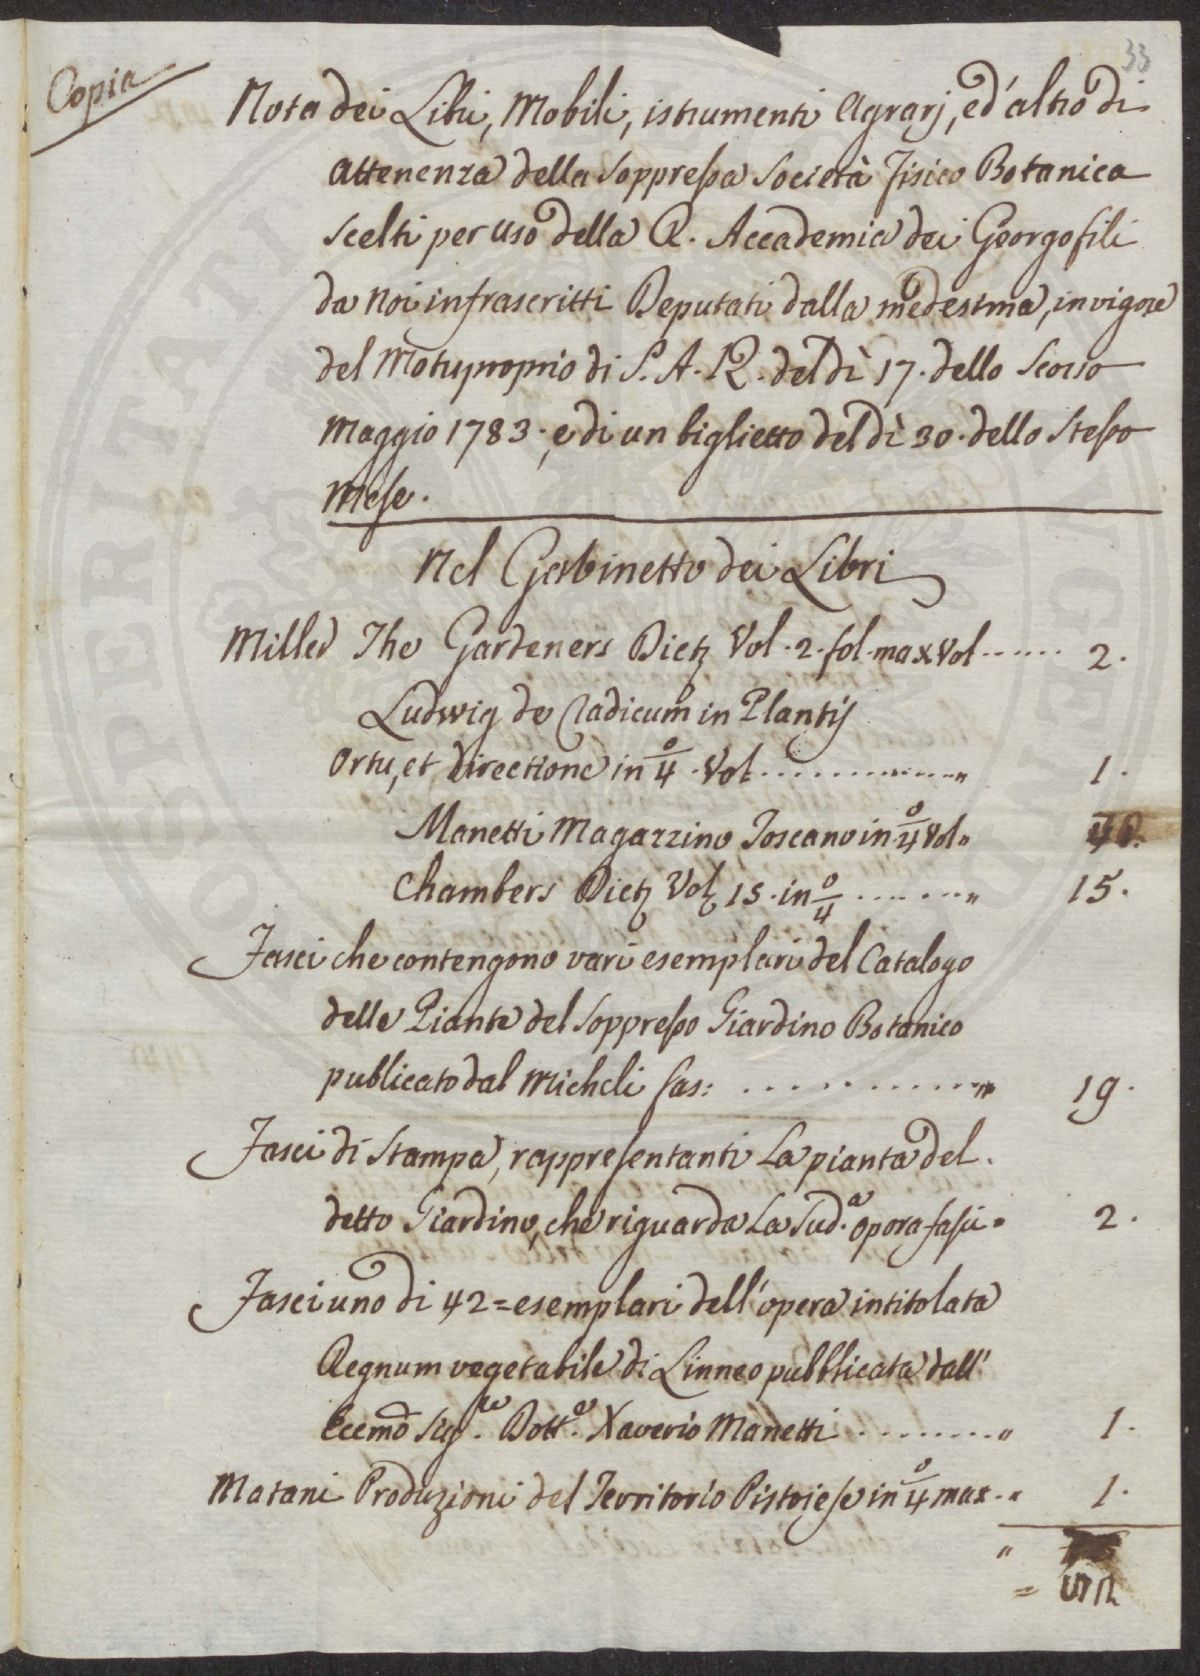 33
Copia
Nota dei Libri, Mobili, istrumenti Agrarj, ed'altro di
attenenza della Soppressa Società Fisico Botanica
scelti per uso della R. Accademia dei Georgofili
da Noi infrascritti Deputati dalla medesima, in vigore
del Motuproprio di S. A. R. del dì 17. dello Scorso
Maggio 1783. e di un biglietto del dì 30. dello Stesso
Mese.
Nel Gabinetto dei Libri
Miller The Gardeners Dict Vol. 2. fol. max Vol ...... 2.
Ludwig de radicum in Plantis
Ortu, et directione in 4o Vol. ............ " 1.
Manetti Magazzino Toscano in 4o Vol "
Chambers Dict Vol 15. in 4o ......... " 15.
Fasci che contengono vari esemplari del Catalogo
delle Piante del Soppresso Giardino Botanico
publicato dal Micheli fas: ............ " 19.
Fasci di Stampa, rappresentanti La pianta del
detto Giardino, che riguarda La Sud.a opora fasci " 2.
Fasci uno di 42 = esemplari dell'opera intitolata
Regnum vegetabile di Linneo pubblicata dall'
Ecemo Sig.re Dott.e Xaverio Manetti ......... " 1.
Matani Produzioni del Territorio Pistojese in 4o max. " 1.
"
=
SPERITATI